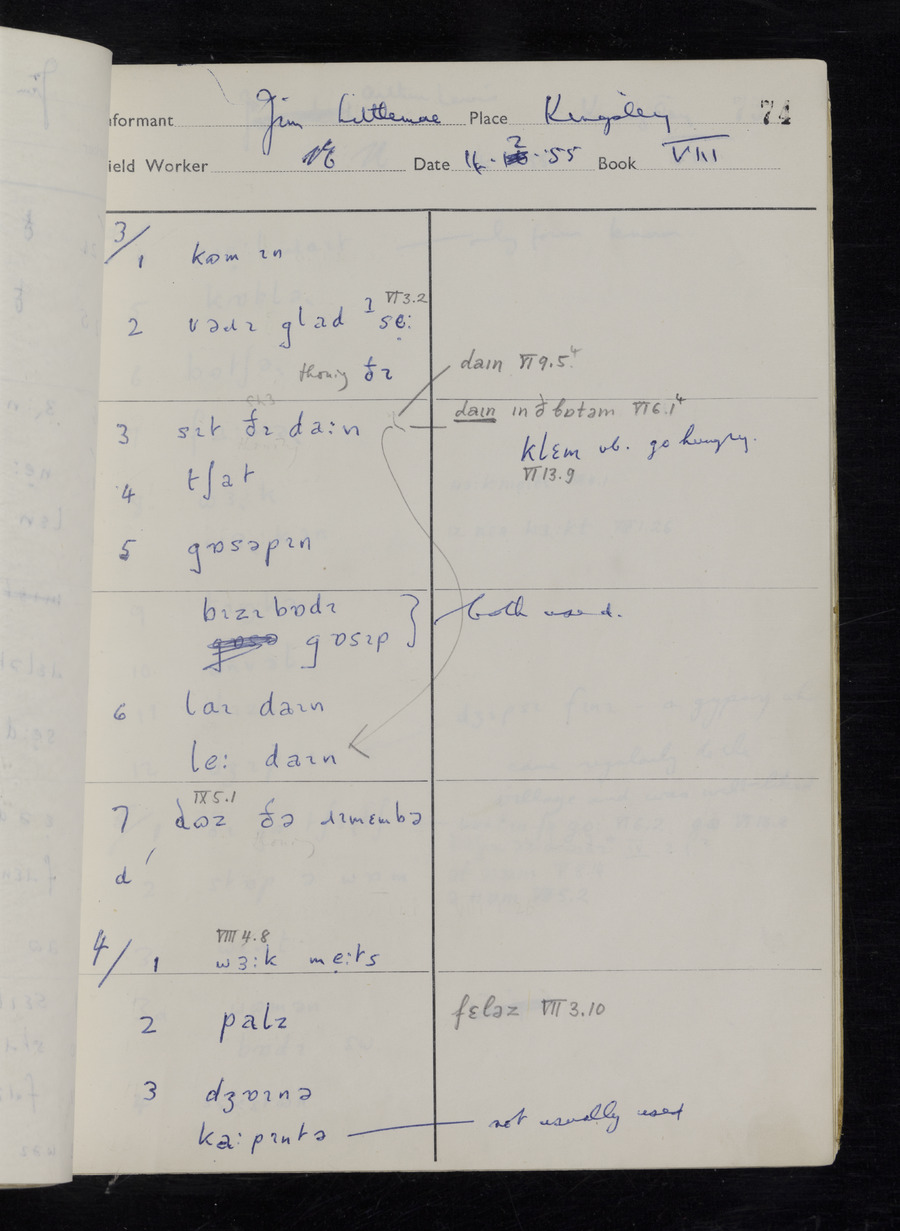 Informant Jim Littlemore Place Kingsley 74
Field Worker Date 16. 2 .'55 Book VIII
3/
1 kɷm ɪn
VI 3.2
2 vəɹɪ glad ɪ sẹː
thonig ðɪ
daɪn VI 9.5⁴
daɪn in ð bɒtəm VI 6.1⁴
3 sɪt ðɪ daːn
klɛm vb. go hungry.
VI 13.9
4 tʃat
5 gɒsəpɪn
bɪzɪbɒdɪ
gɒsɪp } both used.
6 laɪ daɪn
leː daɪn
IX 5.1
7 dɷz ðə ɹɪmɛmbə
d
VIII 4.8
4/ 1 wɜːk meːts
2 palz
fɛləz VII 3.10
3 dʒɒɪnə
kaːpɪntə — not usually used